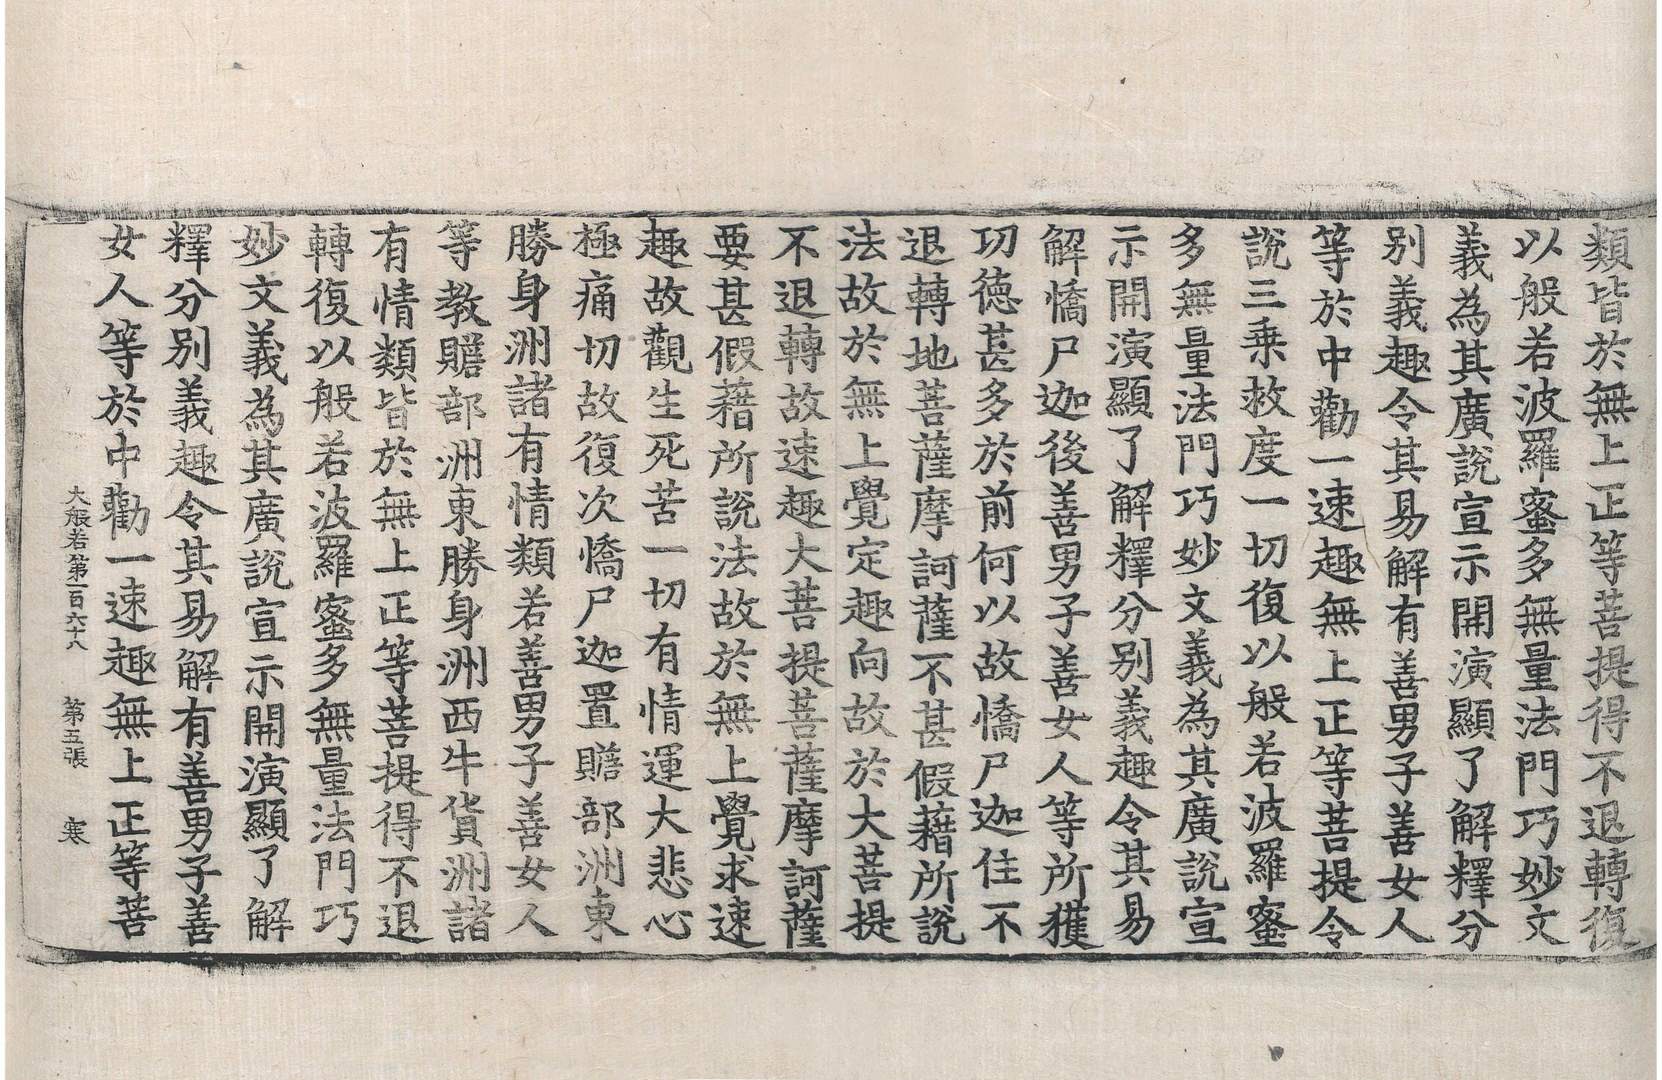 類皆於無上正等菩提得不退轉復
以般若波羅蜜多無量法門巧妙文
義為其廣說宣示開演顯了解釋分
別義趣令其易解有善男子善女人
等於中勸一速趣無上正等菩提令
說三乘救度一切復以般若波羅蜜
多無量法門巧妙文義為其廣說宣
示開演顯了解釋分別義趣令其易
解憍尸迦後善男子善女人等所獲
功德甚多於前何以故憍尸迦住不
退轉地菩薩摩訶薩不甚假藉所說
法故於無上覺定趣向故於大菩提
不退轉故速趣大菩提菩薩摩訶薩
要甚假藉所說法故於無上覺求速
趣故觀生死苦一切有情運大悲心
極痛切故復次憍尸迦置贍部洲東
勝身洲諸有情類若善男子善女人
等教贍部洲東勝身洲西牛貨洲諸
有情類皆於無上正等菩提得不退
轉復以般若波羅蜜多無量法門巧
妙文義為其廣說宣示開演顯了解
釋分別義趣令其易解有善男子善
女人等於中勸一速趣無上正等菩
大般若第一百六十八 第五張 寒